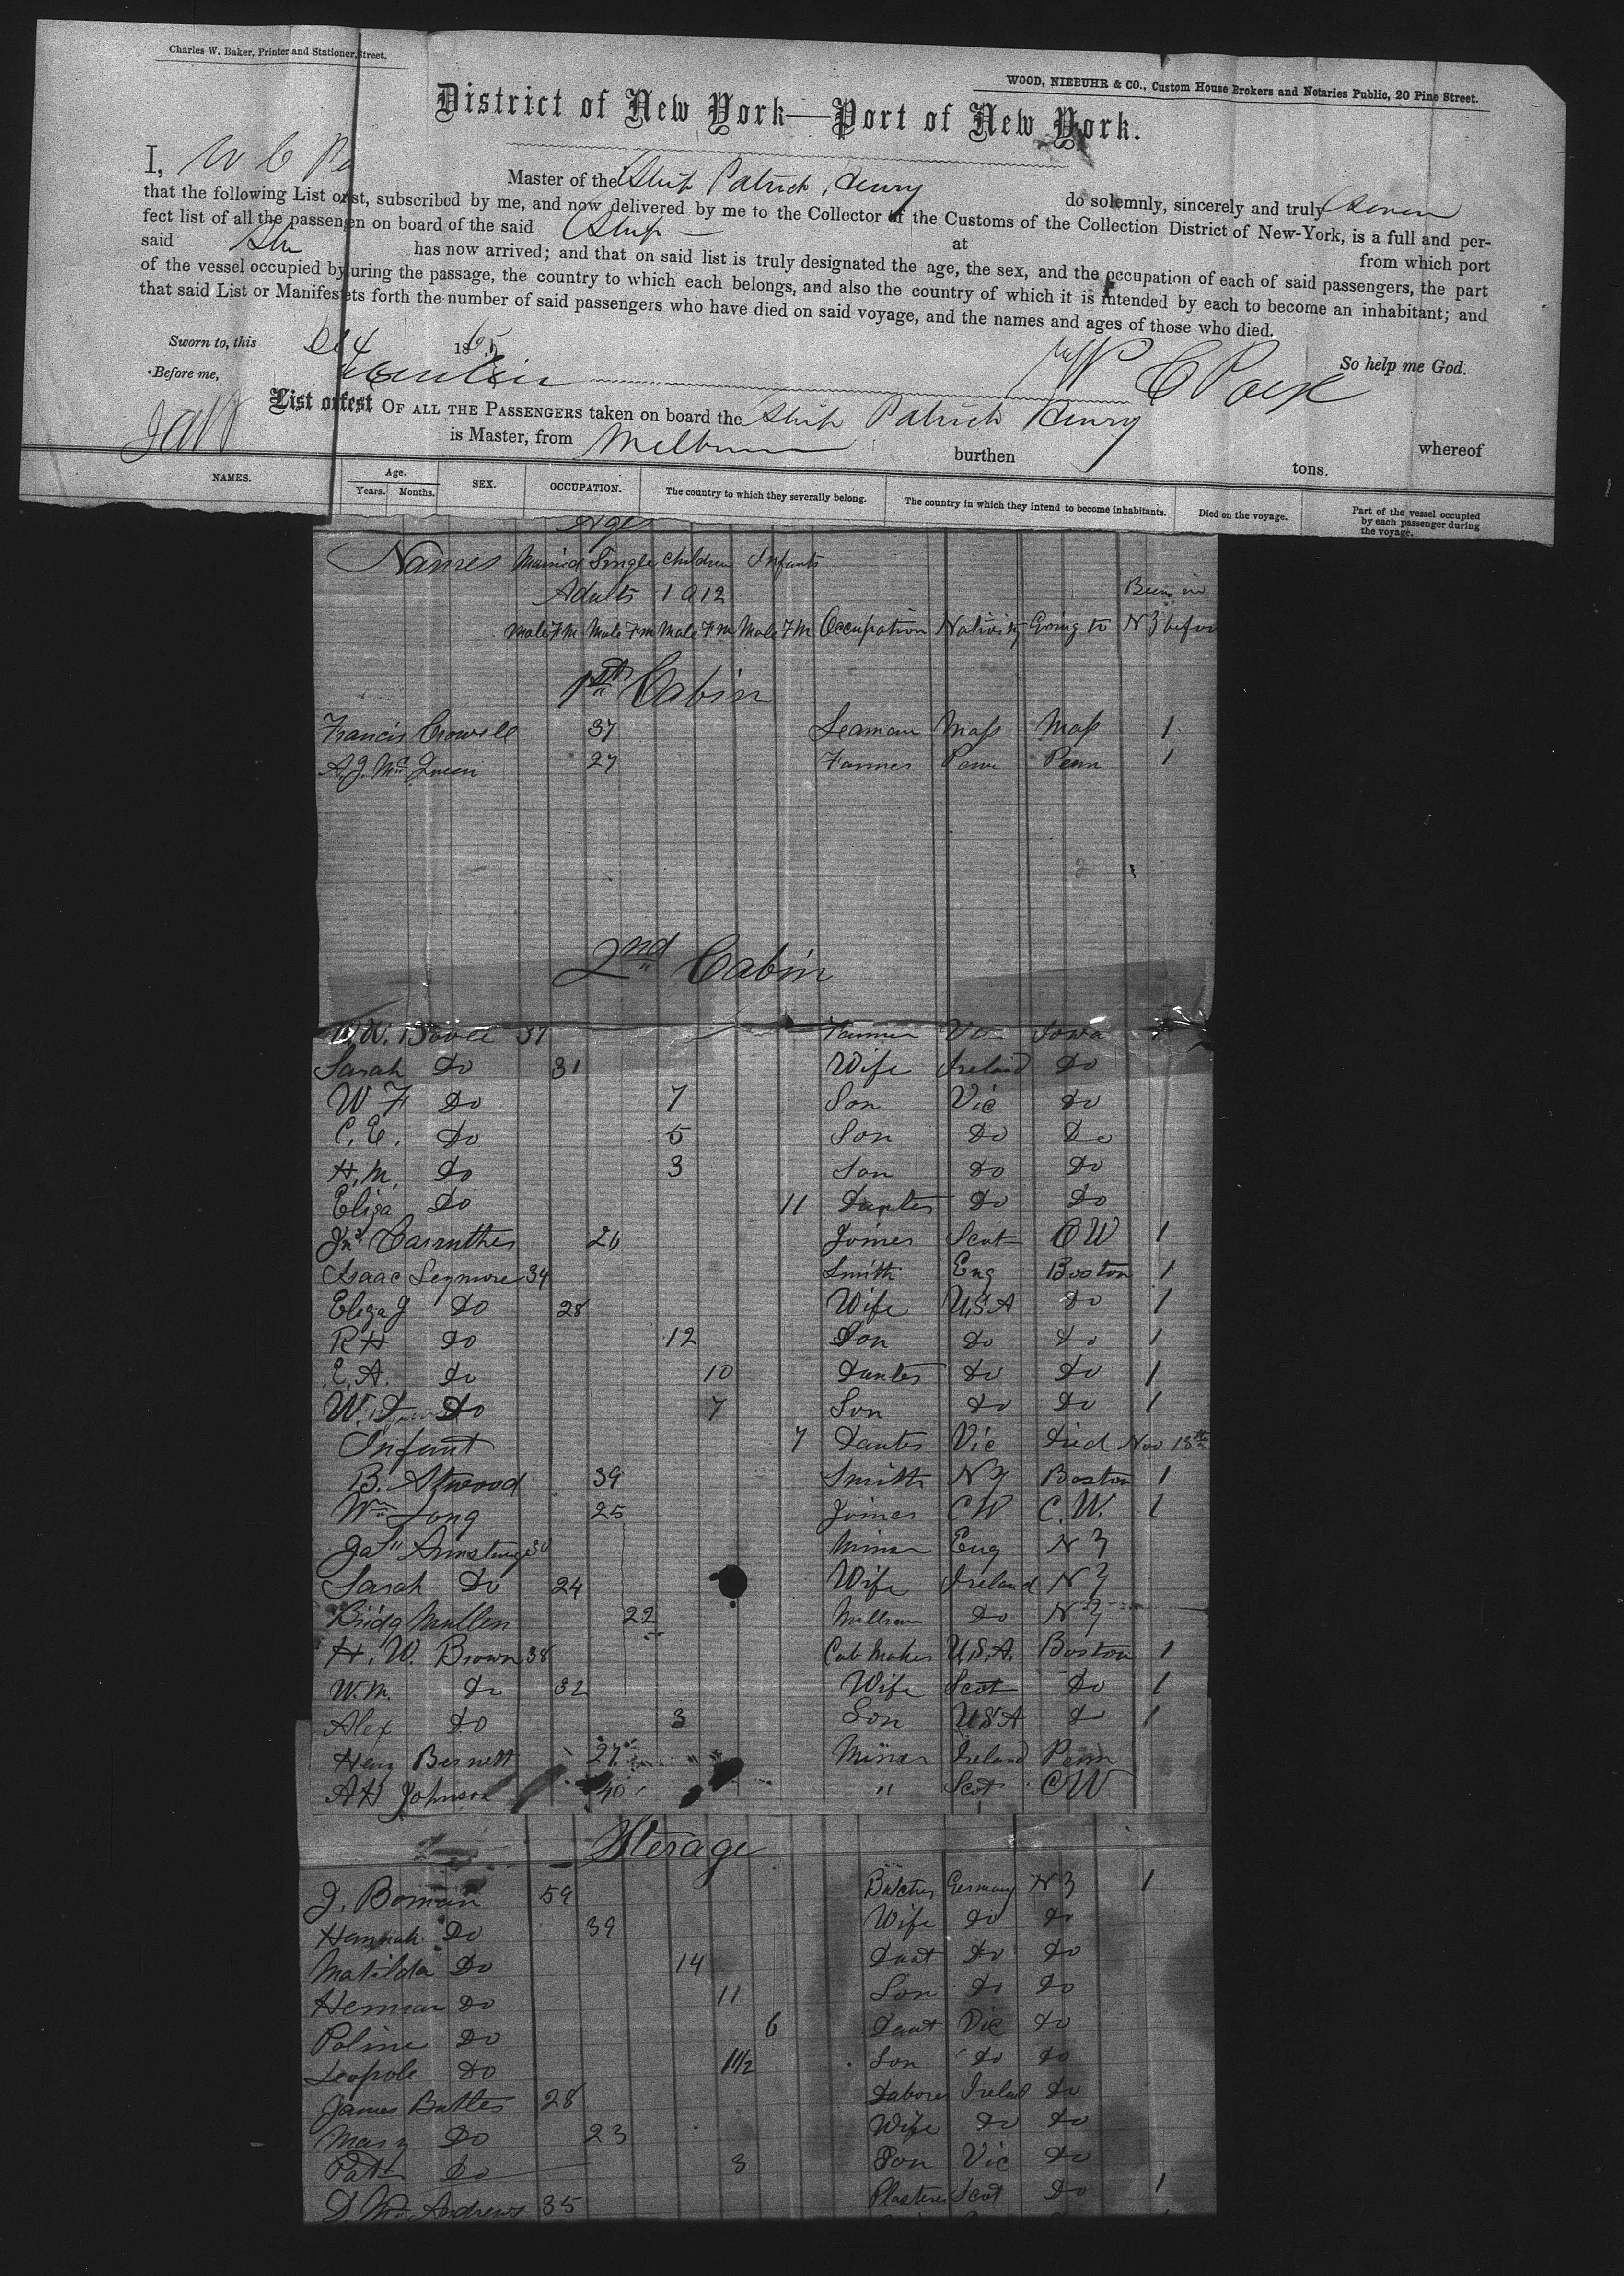 Charles W. Baker, Printer and Stationer, Street.
WOOD, NIEBUHR & CO., Custom House Brokers and Notaries Public, 20 Pine Street.
District of New York—Port of New York.
I, W C Master of the Ship Patrick Henry do solemnly, sincerely and truly
that the following List or st, subscribed by me, and now delivered by me to the Collector of the Customs of the Collection District of New-York, is a full and per-
fect list of all the passengen on board of the said Ship at from which port
said has now arrived; and that on said list is truly designated the age, the sex, and the occupation of each of said passengers, the part
of the vessel occupied by uring the passage, the country to which each belongs, and also the country of which it is intended by each to become an inhabitant; and
that said List or Manifes ets forth the number of said passengers who have died on said voyage, and the names and ages of those who died.
So help me God.
Sworn to, this 1865
Before me,
W C
List or fest OF ALL THE PASSENGERS taken on board the Ship Patrick Henry whereof
is Master, from burthen tons.
NAMES. Age. Years. Months. SEX. OCCUPATION. The country to which they severally belong. The country in which they intend to become inhabitants. Died on the voyage. Part of the vessel occupied by each passenger during the voyage.
Ages
Names Married Single Children Infants
Adults 1 a 12 Been in
Male Fm Male Fm Male Fm Male Fm Occupation Nativity Going to NY before
1st Cabin
Francis Crowell 37 Seaman Mass Mass 1
27 Farmer Penn Penn 1
2nd Cabin
W.W. 37 Farmer Iowa 1
Sarah Do 31 Wife Ireland Do
W F Do 7 Son Vic Do
C. E. Do 5 Son Do Do
H. M. Do 3 Son Do Do
Eliza Do 11 Do Do
Jno Carruther Joiner Scot C W 1
Isaac Seymore 34 Smith Eng Boston 1
Eliza J Do 28 Wife U.S.A Do 1
R H Do 12 Son Do Do 1
E. A. Do 10 Do Do 1
W. Do 7 Son Do Do 1
Infant 7 Vic Died Nov 18th
B. Atwood 39 Smith NY Boston 1
Wm Long 25 Joiner C W C. W. 1
Jas Armstrong 30 Miner Eng N Y
Sarah Do 24 Wife Ireland N Y
Bridg Mullen 22 Do N Y
H. W. Brown 38 Cab Maker U.S.A. Boston 1
W. M. Do 32 Wife Scot Do 1
Alex Do 3 Son U.S.A Do 1
Heny 27 Miner Ireland Penn
A H Johnson 40 " Scot C W
Sterage
J. Boman 59 Butcher Germany N Y 1
Hannah Do 39 Wife Do Do
Matilda Do 14 Daut Do Do
Herman Do 11 Son Do Do
Poline Do 6 Daut Vic Do
Leopole Do 11/2 Son Do Do
James Butler 28 Laborer Ireland Do
Mary Do 23 Wife Do Do
Patk Do 3 Son Vic Do
D. Mc Andrews 35 Plasterer Scot Do 1